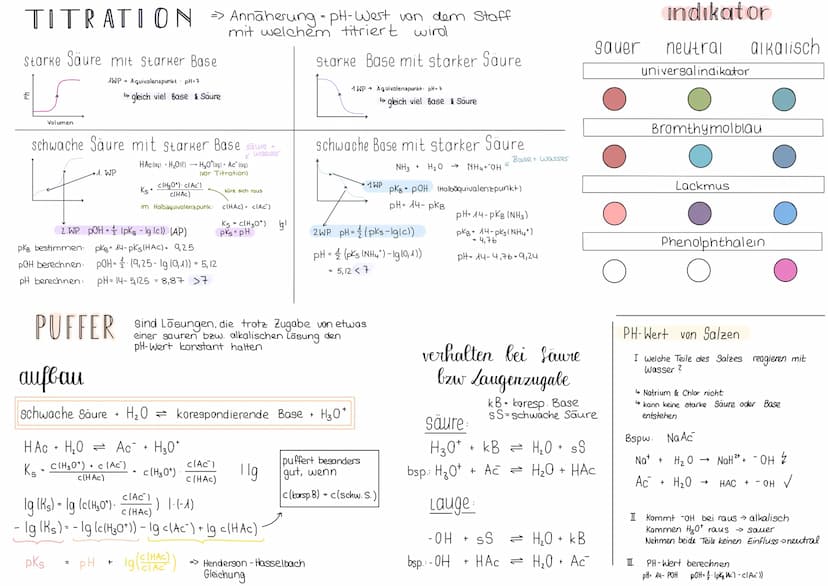 TITRATION
⇒ Annäherung = pH-Wert von dem Stoff
mit welchem titriert wird
starke Säure mit starker Base
1WP = Äquivalenspunkt · pH=7
↳ gleich viel Base & Säure
PH
Volumen
starke Base mit starker Säure
1WP → Äquivalenspunkt · pH=7
↳ gleich viel Base & Säure
schwache Säure mit starker Base
Säure + Wasser
HAc(aq) + H₂O(l) → H₃O⁺(aq) + Ac⁻(aq)
(vor Titration)
1. WP
Ks = c(H₃O⁺) · c(Ac⁻) / c(HAc)
kürzt sich raus
im Halbäquivalenspunkt: c(HAc) = c(Ac⁻)
Ks = c(H₃O⁺) lg!
pKs = pH
2 WP pOH = ½ (pKB - lg(c)) (AP)
pKB bestimmen: pKB = 14 - pKs(HAc) = 9,25
pOH berechnen: pOH = ½ · (9,25 - lg(0,1)) = 5,12
pH berechnen: pH = 14 - 5,125 = 8,87 >7
schwache Base mit starker Säure
NH₃ + H₂O → NH₄ + OH⁻
= Base + Wasser
1WP pKB = pOH (Halbäquivalenzpunkt)
pH = 14 - pKB
2WP pH = ½ (pKs - lg(c))
pH = ½ (pKs(NH₄⁺) - lg(0,1))
= 5,12 < 7
pH = 14 - pKB (NH₃)
pKB = 14 - pKs(NH₄⁺)
= 4,76
pH = 14 - 4,76 = 9,24
indikator
sauer neutral alkalisch
universalindikator
Bromthymolblau
Lackmus
Phenolphthalein
PUFFER
Sind Lösungen, die trotz Zugabe von etwas
einer sauren bzw. alkalischen Lösung den
pH-Wert konstant halten
aufbau
schwache Säure + H₂O ⇌ korespondierende Base + H₃O⁺
HAc + H₂O ⇌ Ac⁻ + H₃O⁺
Ks = c(H₃O⁺) · c(Ac⁻) / c(HAc) = c(H₃O⁺) · c(Ac⁻) / c(HAc) | lg
lg(Ks) = lg (c(H₃O⁺) · c(Ac⁻) / c(HAc)) | · (-1)
- lg(Ks) = - lg(c(H₃O⁺)) - lg c(Ac⁻) + lg c(HAc)
pKs = pH + lg(c(HAc) / c(Ac⁻))
⇒ Henderson - Hasselbach
Gleichung
puffert besonders
gut, wenn
c(korsp.B) = c(schw. S.)
verhalten bei Säure
bzw Laugenzugabe
kB = koresp. Base
sS = schwache Säure
säure:
H₃O⁺ + kB ⇌ H₂O + sS
bsp.: H₃O⁺ + Ac⁻ ⇌ H₂O + HAc
Lauge:
-OH + sS ⇌ H₂O + kB
bsp.: -OH + HAc ⇌ H₂O + Ac⁻
PH-Wert von Salzen
I welche Teile des Salzes reagieren mit
Wasser?
↳ Natrium & Chlor nicht
↳ kann keine starke Säure oder Base
entstehen
Bspw: NaAc⁻
Na⁺ + H₂O → NaH²⁺ + -OH ↯
Ac⁻ + H₂O → HAC + -OH ✓
II Kommt -OH bei raus → alkalisch
Kommen H₃O⁺ raus → sauer
Nehmen beide Teile keinen Einfluss → neutral
III PH-Wert berechnen